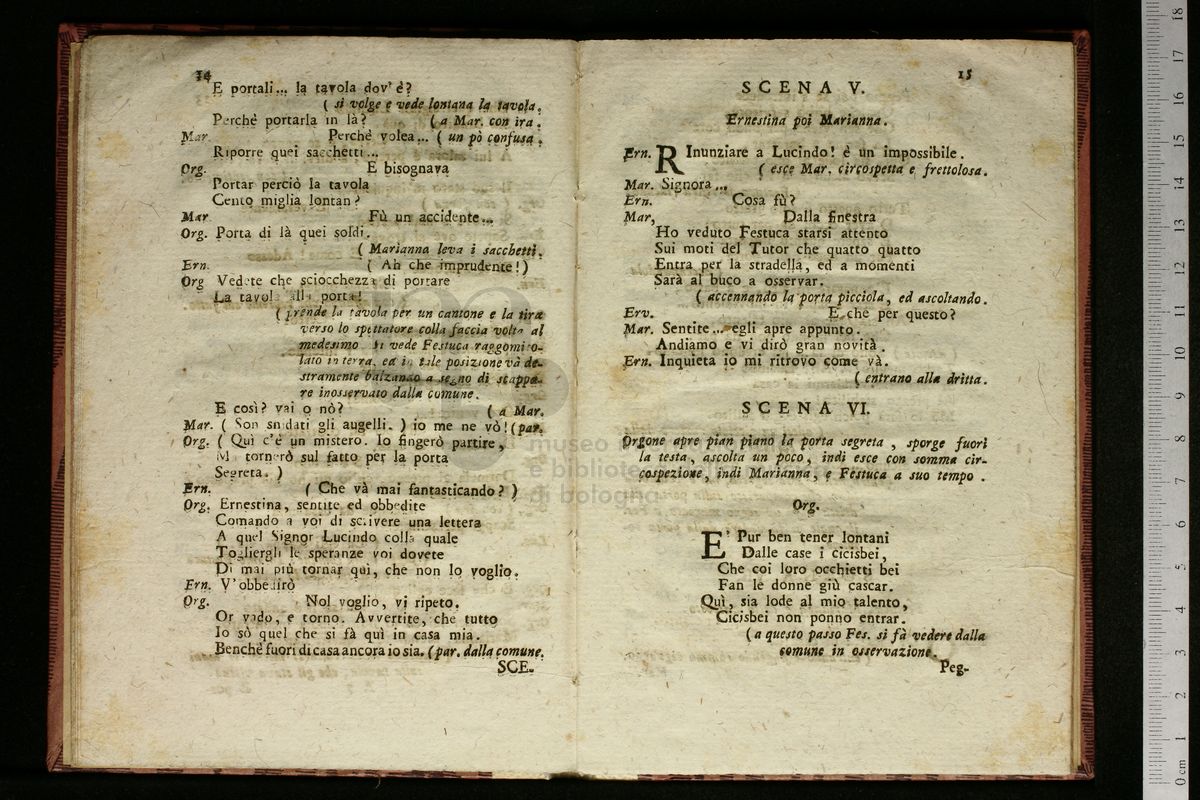 14
E portali... la tavola dov' è?
( si volge e vede lontana la tavola.
Perchè portarla in là? ( a Mar. con ira.
Mar. Perchè volea... ( un pò confusa.
Riporre quei sacchetti...
Org. E bisognava
Portar perciò la tavola
Cento miglia lontan?
Mar Fù un accidente...
Org. Porta di là quei soldi.
( Marianna leva i sacchetti.
Ern. ( Ah che imprudente! )
Org Vedete che sciocchezza di portare
La tavola alla porta!
( prende la tavola per un cantone e la tira
verso lo spettatore colla faccia volta al
medesimo. Si vede Festuca raggomito-
lato in terra, ed in tale posizione và de-
stramente balzando a segno di scappa-
re inosservato dalla comune.
E così? vai o nò? ( a Mar.
Mar. ( Son snidati gli augelli. ) io me ne vò! (par.
Org. ( Quì c'è un mistero. Io fingerò partire,
Ma tornerò sul fatto per la porta
Segreta. )
Ern. ( Che và mai fantasticando? )
Org. Ernestina, sentite ed obbedite
Comando a voi di scrivere una lettera
A quel Signor Lucindo colla quale
Togliergli le speranze voi dovete
Di mai più tornar quì, che non lo voglio.
Ern. V'obbedirò
Org. Nol voglio, vi ripeto.
Or vado, e torno. Avvertite, che tutto
Io sò quel che si fà quì in casa mia.
Benchè fuori di casa ancora io sia. (par. dalla comune.
SCE-
15
SCENA V.
Ernestina poi Marianna.
Ern. RInunziare a Lucindo! è un impossibile.
( esce Mar. circospetta e frettolosa.
Mar. Signora...
Ern. Cosa fù?
Mar, Dalla finestra
Ho veduto Festuca starsi attento
Sui moti del Tutor che quatto quatto
Entra per la stradella, ed a momenti
Sarà al buco a osservar.
( accennando la porta picciola, ed ascoltando.
Erv. E che per questo?
Mar. Sentite... egli apre appunto.
Andiamo e vi dirò gran novità.
Ern. Inquieta io mi ritrovo come và.
( entrano alla dritta.
SCENA VI.
Orgone apre pian piano la porta segreta, sporge fuori
la testa, ascolta un poco, indi esce con somma cir-
cospezione, indi Marianna, e Festuca a suo tempo.
Org.
E' Pur ben tener lontani
Dalle case i cicisbei,
Che coi loro occhietti bei
Fan le donne giù cascar.
Quì, sia lode al mio talento,
Cicisbei non ponno entrar.
(a questo passo Fes. si fà vedere dalla
comune in osservazione.
Peg-